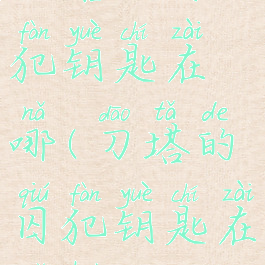 fàn yuè chí zài
犯钥匙在
nǎ dāo tǎ de
哪(刀塔的
qiú fàn yuè chí zài
囚犯钥匙在